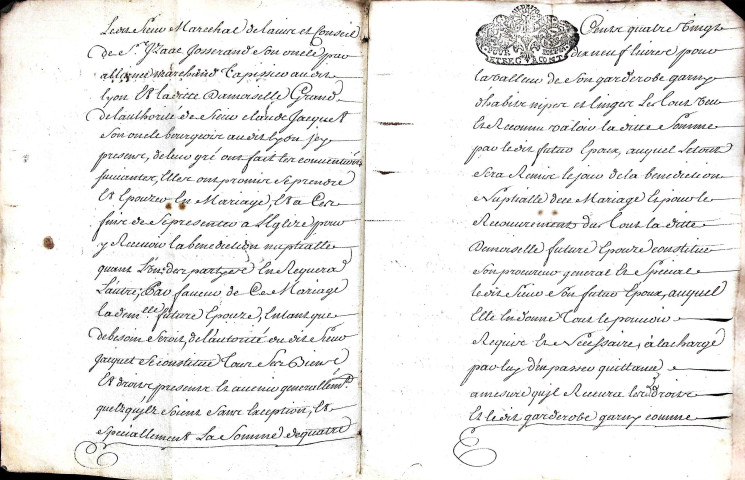 Ledit Sieur Marechal de l'avis et Conseil
de Sr. Yzaac Josserand Son oncle par
alliance marchand Tapissier audit
Lyon Et laditte Damoiselle Grand
de l'authorité de Sieur Claude Jacquet
Son oncle bourgeois audit Lyon icy
present, de leur gré ont fait les conventions
suivantes, Elles ont promis se prendre
Et Epouzer En Mariage, Et a Cet
fin de se presenter a l'Eglize pour
y Recevoir la benediction nuptialle
quant l'un des partyes En Requera
l'autre, Par faveur de Ce Mariage
la demlle future Epouze, Entant que
de besoin Seroit, de l'autorité du dit Sieur
Jacquet Se constitue Tous Ses Biens
Et droits presents et avenir generallemt.
quelz qu'ils Soient Sans Exeption, Et
Specialement La Somme de quatre
Cents quatre Vingt
dix neuf livres pour
la valleur de Son garderobe garny
d'habits nipes et linges Le Tout Veu
Et Reconnu valoir la ditte Somme
par ledit futur Epoux, auquel Le tout
Sera Remis le jour de la benediction
Nuptialle de ce Mariage Et pour le
Recouvrement du Tout la ditte
Demoiselle future Epouze constitue
Son procureur general Et Special
le dit Sieur Son futur Epoux, auquel
Elle En donne Tout le pouvoir
Requis Et Necessaire, a la charge
par luy d'en passer quittance
a mesure qu'il Recevra les dits droits
Et le dit garderobe garny comme